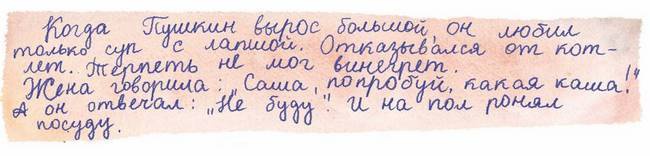 Когда Пушкин вырос большой, он любил
только суп с лапшой. Отказывался от кот-
лет. Терпеть не мог винегрет.
Жена говорила: „Саша, попробуй, какая каша!"
А он отвечал: „Не буду". И на пол ронял
посуду.